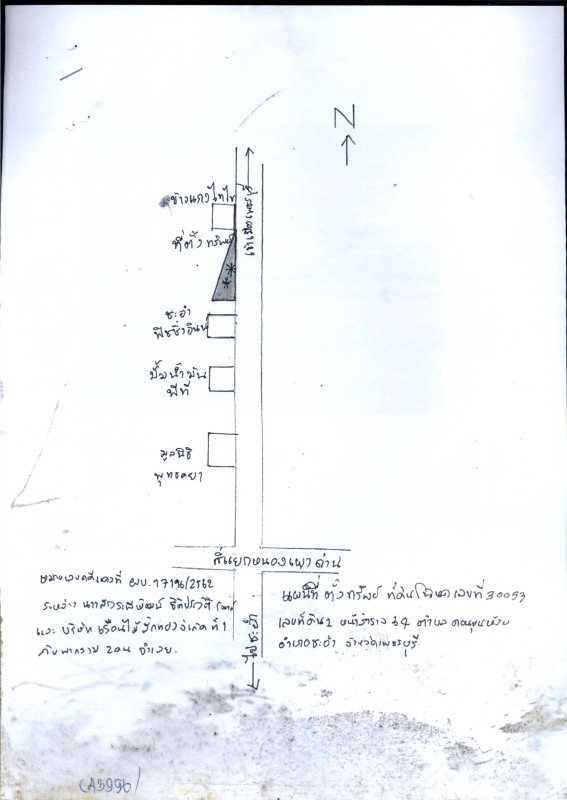 N
ข้าวแกงไทไท
เข้าเมืองเพชรบุรี
ที่ตั้งทรัพย์
ชะอำ
ฟิชชิ่งอินน์
ปั๊มน้ำมัน
พีที
มูลนิธิ
พุทธคยา
สี่แยกหนองเผาถ่าน
ไปชะอำ
หมายเลขคดีแดงที่ ผบ.17196/2562
ระหว่าง
และ บริษัท เรือนไม้รักทองจำกัด ที่ 1
กับพวกรวม 2 คน จำเลย.
แผนที่ ตั้งทรัพย์ ที่ดินโฉนดเลขที่ 30053
เลขที่ดิน 2 หน้าสำรวจ 64 ตำบล ดอนขุนห้วย
อำเภอชะอำ จังหวัดเพชรบุรี
(A3996)